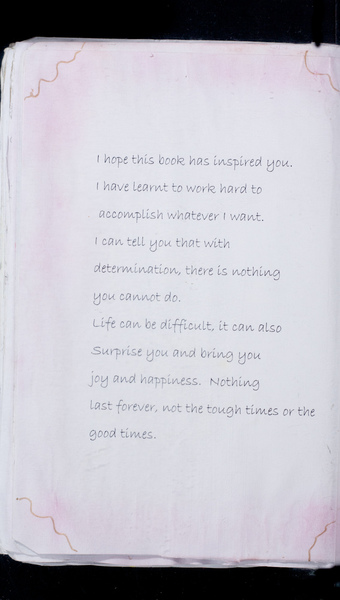 I hope this book has inspired you.
I have learnt to work hard to
accomplish whatever I want.
I can tell you that with
determination, there is nothing
you cannot do.
Life can be difficult, it can also
Surprise you and bring you
joy and happiness. Nothing
last forever, not the tough times or the
good times.